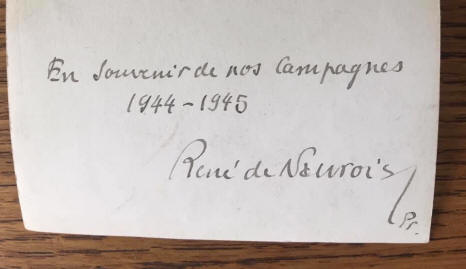 En souvenir de nos Campagnes
1944-1945
René de Naurois
Pr.